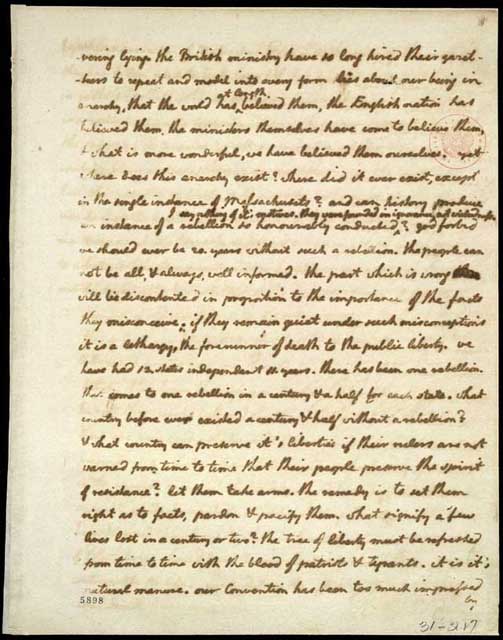 -vering lying. the British ministry have so long hired their gazet-
-teers to repeat and model into every form lies about our being in
anarchy, that the world has at length believed them, the English nation has
believed them, the ministers themselves have come to believe them,
& what is more wonderful, we have believed them ourselves. yet
where does this anarchy exist? where did it ever exist, except
in the single instance of Massachusets? and can history produce
I say nothing of it's motives. they were founded in ignorance, not wickedness.
an instance of a rebellion so honourably conducted? god forbid
we should ever be 20. years without such a rebellion. the people can
not be all, & always, well informed. the part which is wrong
will be discontented in proportion to the importance of the facts
they misconceive. if they remain quiet under such misconceptions
it is a lethargy, the forerunner of death to the public liberty. we
have had 13. states independant 11. years. there has been one rebellion.
that comes to one rebellion in a century & a half for each state. what
country before ever existed a century & half without a rebellion?
& what country can preserve it's liberties if their rulers are not
warned from time to time that their people preserve the spirit
of resistance? let them take arms. the remedy is to set them
right as to facts, pardon & pacify them. what signify a few
lives lost in a century or two? the tree of liberty must be refreshed
from time to time with the blood of patriots & tyrants. it is it's
natural manure. our Convention has been too much impressed
by
5898